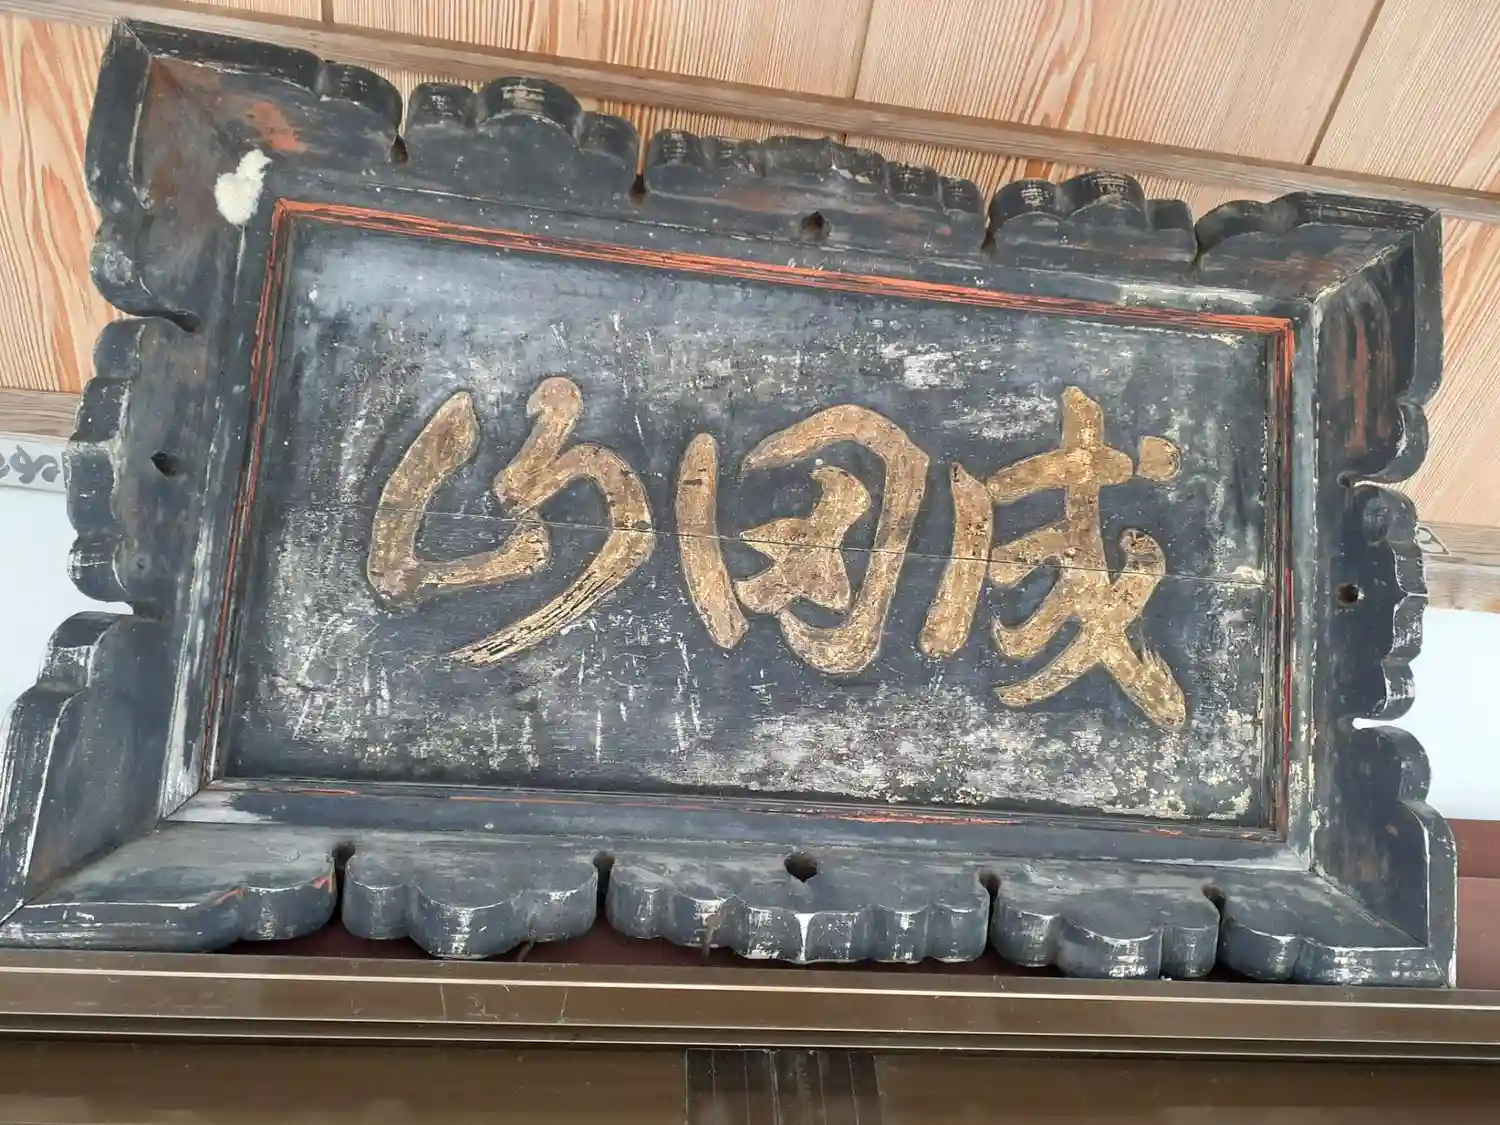 成田山